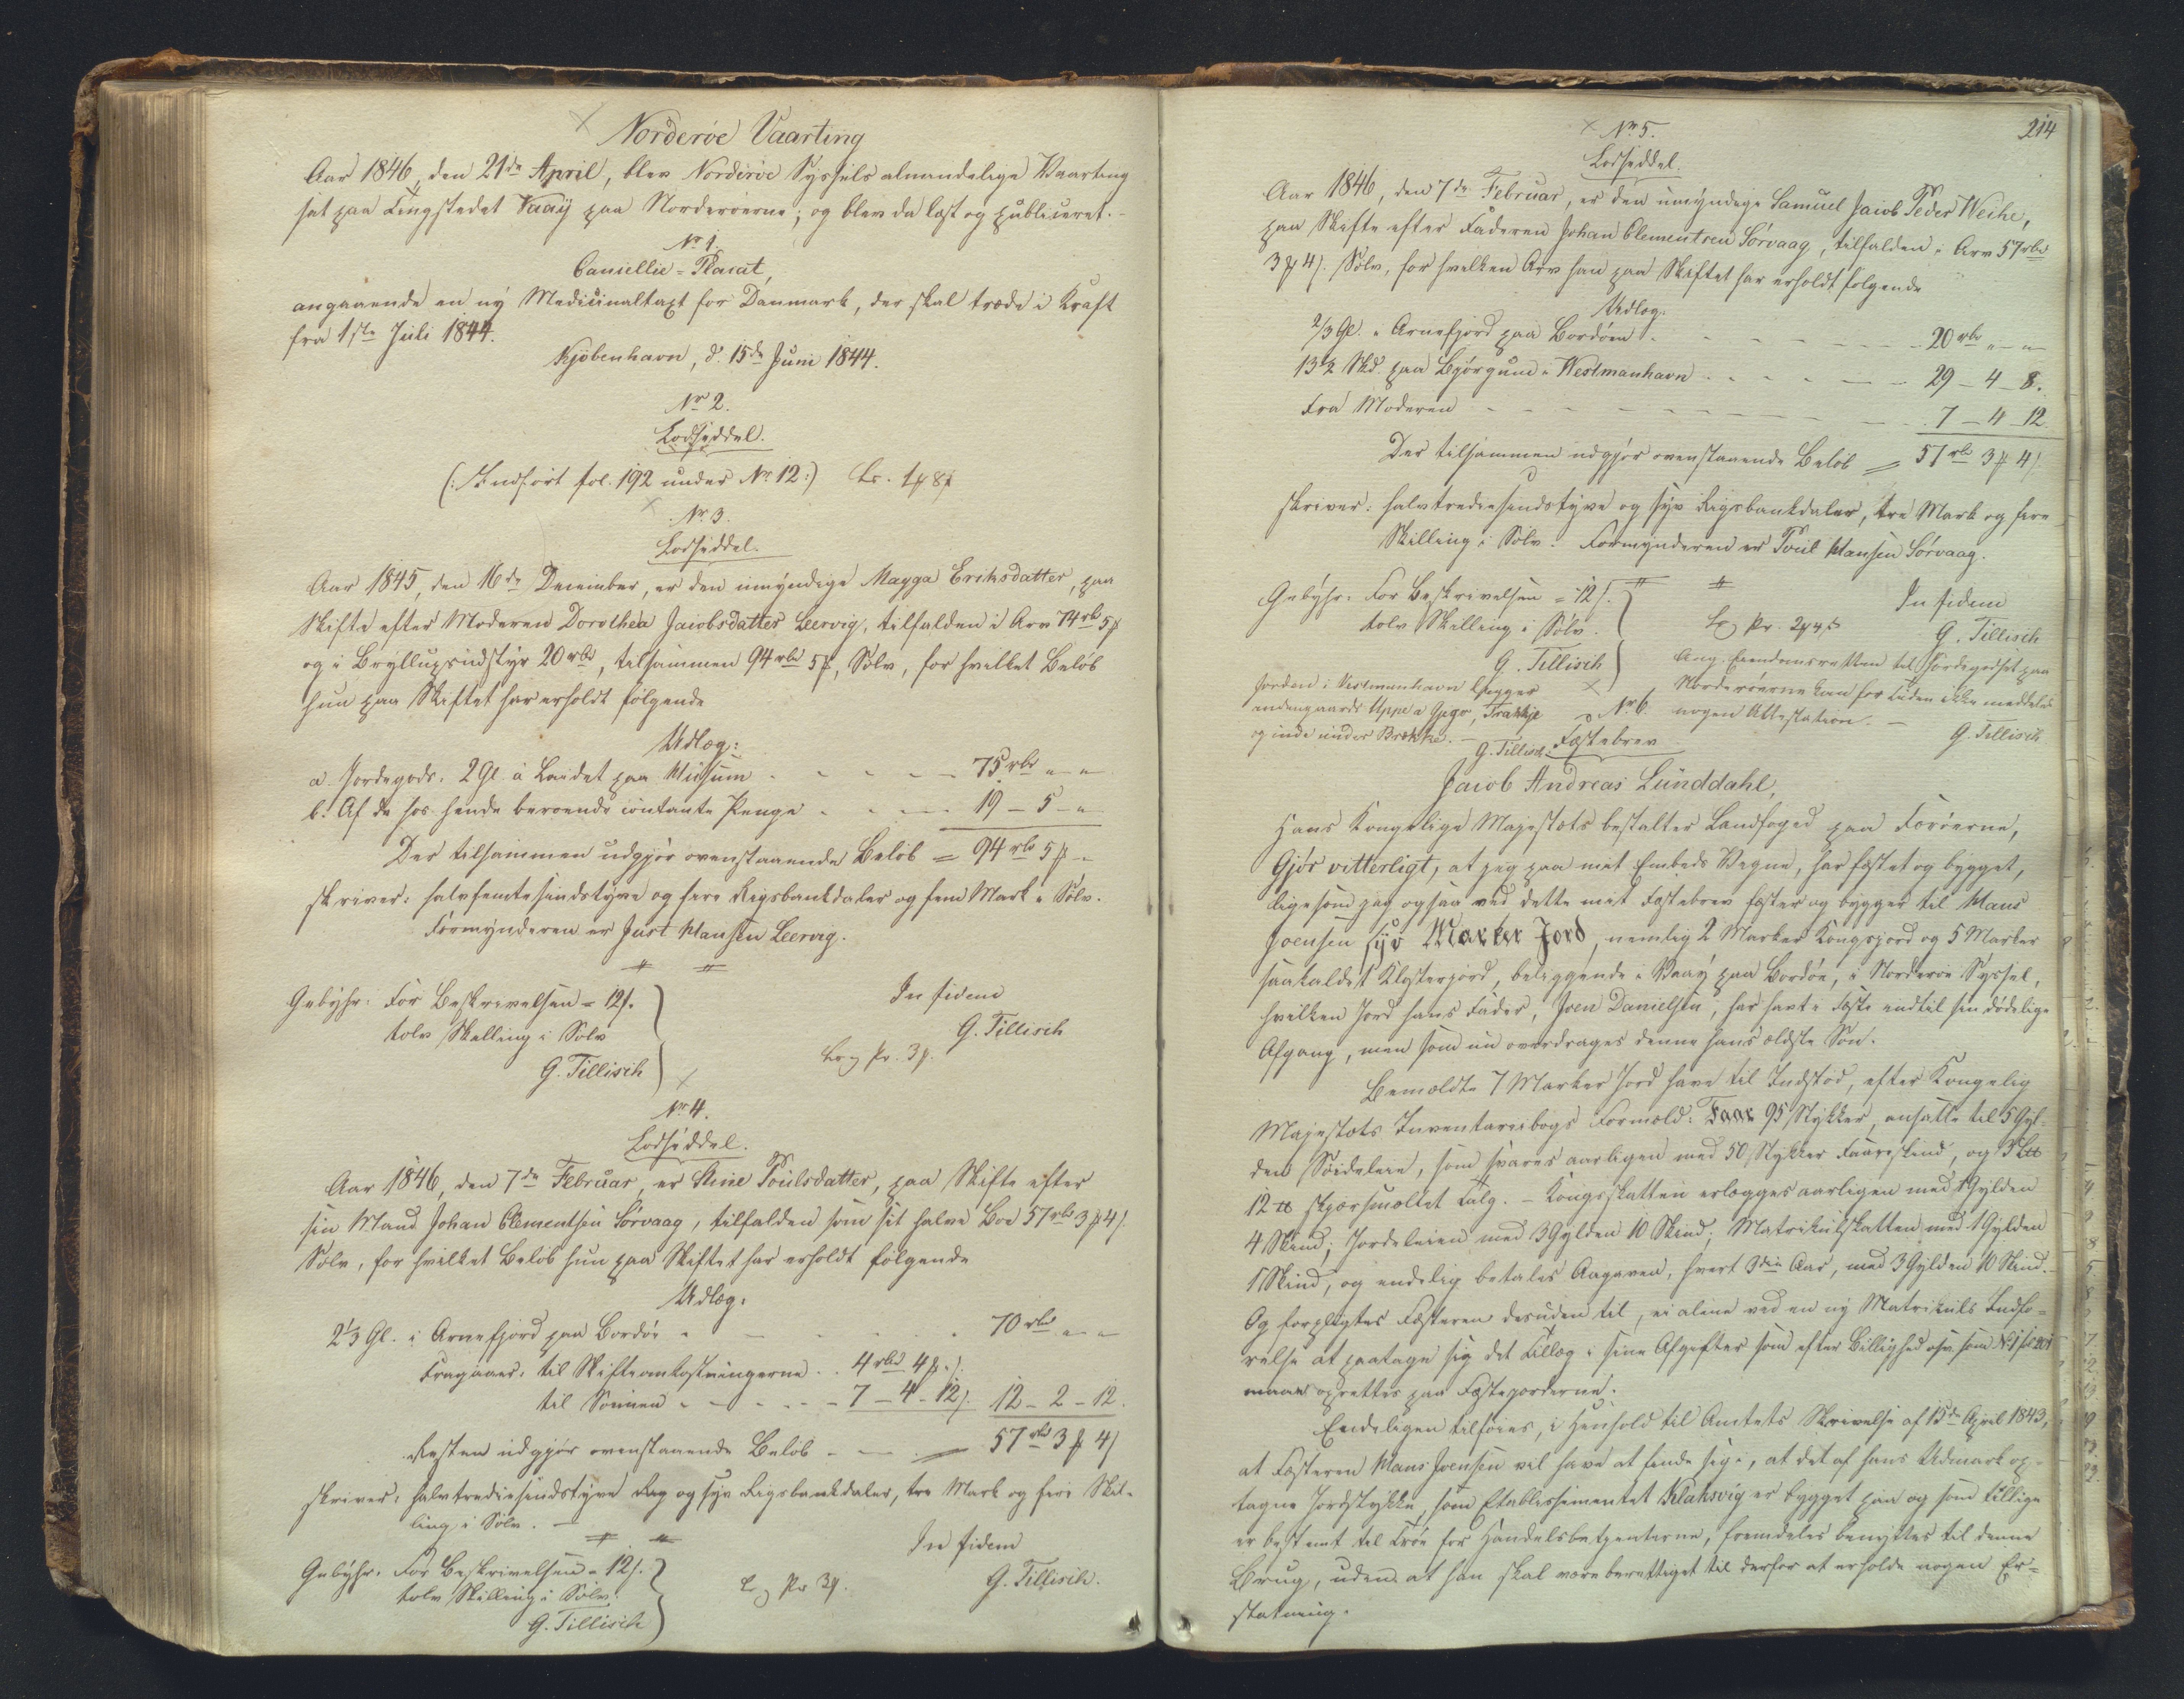 Norderøe Vaarting
Aar 1846, den 21de April, blev Norderøe Syssels almindelige Vaarting
sat paa Tingstedet Vaaÿ paa Norderøerne; og blev da læst og publiceret.
No 1.
Cancellie-Placat,
angaaende en ny Medicinaltaxt for Danmark, der skal træde i Kraft
fra 1ste Juli 1844.
Kjöbenhavn, d. 15de Juni 1844.
No 2.
Lodseddel.
(: Indført fol. 192 under No 12:)
No 3.
Lodseddel.
Aar 1845, den 16de December, er den umyndige Magga Eriksdatter, paa
Skifte efter Moderen Dorothea Jacobsdatter Leervig, tilfalden i Arv 74 rbd 5 ℔
og i Bryllupsudstyr 20 rbd, tilsammen 94 rbd 5 ℔, Sølv, for hvilket Beløb
hun paa Skiftet har erholdt følgende
Udlæg:
a. Jordegods: 2 Gl. i Laidet paa Husum - - - - 75 rbd " "
b. Af de hos hende beroende contante Penge - - - 19 - 5 - "
Der tilsammen udgjør ovenstaaende Beløb = 94 rbd 5 ℔ -
skriver: halvfemtesindstyve og fire Rigsbankdaler og fem Mark i Sølv.
Formynderen er Just Hansen Leervig.
Gebyhr: For Beskrivelsen = 12 s.
tolv Skilling i Sølv
G. Tillisch
In fidem
G. Tillisch
No 4.
Lodseddel.
Aar 1846, den 7de Februar, er Stine Poulsdatter, paa Skifte efter
sin Mand Johan Clementsen Sørvaag, tilfalden som sit halve Boe 57 rbd 3 ℔ 4 s
Sølv, for hvilket Beløb hun paa Skiftet har erholdt følgende
Udlæg:
2 1/3 Gl. i Arnefjord paa Bordøe - - - - 70 rbd " "
Fragaaer: til Skifteomkostningerne . . 4 rbd 4 ℔ - s.
til Sønnen - - - - - 7 - 4 - 12 s. 12 - 2 - 12.
Resten udgjør ovenstaaende Beløb - - - 57 rbd 3 ℔ 4 s
skriver: halvtrediesindstyve og syv Rigsbankdaler, tre Mark og fire Skil-
ling i Sølv. -
Gebyhr: For Beskrivelsen = 12 s.
tolv Skilling i Sølv.
G. Tillisch
In fidem
G. Tillisch.
214
No 5.
Lodseddel.
Aar 1846, den 7de Februar, er den umyndige Samuel Jacob Peder Weihe,
paa Skifte efter Faderen Johan Clementsen Sørvaag, tilfalden i Arv 57 rbd
3 ℔ 4 s. Sølv, for hvilken Arv han paa Skiftet har erholdt følgende
Udlæg:
2/3 Gl. i Arnefjord paa Bordøen - - - - 20 rbd " "
13 1/2 Skd. paa Bÿgrund i Westmanhavn - - - - 29 - 4 - 8.
Fra Moderen - - - - 7 - 4 - 12.
Der tilsammen udgjør ovenstaaende Beløb = 57 rbd 3 ℔ 4 s.
skriver: halvtrediesindstyve og syv Rigsbankdaler, tre Mark og fire
Skilling i Sølv. Formynderen er Poul Hansen Sørvaag.
Gebyhr: For Beskrivelsen = 12 s.
tolv Skilling i Sølv.
G. Tillisch
In fidem
G. Tillisch
Ang. Eiendomsretten til Jordegodset paa
Norderøerne kan for Tiden ikke meddeles
nogen Attestation. -
G. Tillisch
Jorden i Westmanhavn ligger
indengaards Uppe a Gjegv, Trankje
og inde under Brekke. -
G. Tillisch
No 6.
Fæstebrev
Jacob Andreas Lunddahl,
Hans Kongelige Majestæts bestalter Landfoged paa Færøerne,
Gjør vitterligt, at jeg paa mit Embeds Vegne, har fæstet og bygget,
ligesom jeg ogsaa ved dette mit Fæstebrev fæster og bygger til Hans
Joensen syv Marker Jord, nemlig 2 Marker Kongsjord og 5 Marker
saakaldet Klosterjord, beliggende i Vaaÿ paa Bordøe, i Norderøe Syssel,
hvilken Jord hans Fader, Joen Danielsen, har havt i Fæste indtil sin dødelige
Afgang, men som nu overdrages denne hans ældste Søn.
Bemældte 7 Marker Jord have til Indstød, efter Kongelig
Majestæts Inventariibogs Formeld: Faar 95 Stykker, ansatte til 5 Gyl-
den Søideleie, som svares aarligen med 50 Stykker Faareskind, og
12 ℔ skjærsmeltet Talg. - Kongsskatten erlægges aarligen med 1 Gylden
4 Skind; Jordeleien med 3 Gylden 10 Skind; Matrikulskatten med 1 Gylden
1 Skind, og endelig betales Aagaven, hvert 3die Aar, med 3 Gylden 10 Skind.
Og forpligtes Fæsteren desuden til, ei alene ved en ny Matrikuls Indfø-
relse at paatage sig det Tillæg i sine Afgifter som efter Billighed osv. som No 1 fol.
maae oprettes paa Fæstejorderne.
Endeligen tilføies, i Henhold til Amtets Skrivelse af 15de April 1843,
at Fæsteren Hans Joensen vil have at finde sig i, at det af hans Udmark op-
tagne Jordstykke, som Etablissementet Klaksvig er bygget paa og som tillige
er bestemt til Trøe for Handelsbetjenterne, fremdeles benyttes til denne
Brug, uden at han skal være berettiget til derfor at erholde nogen Er-
statning.